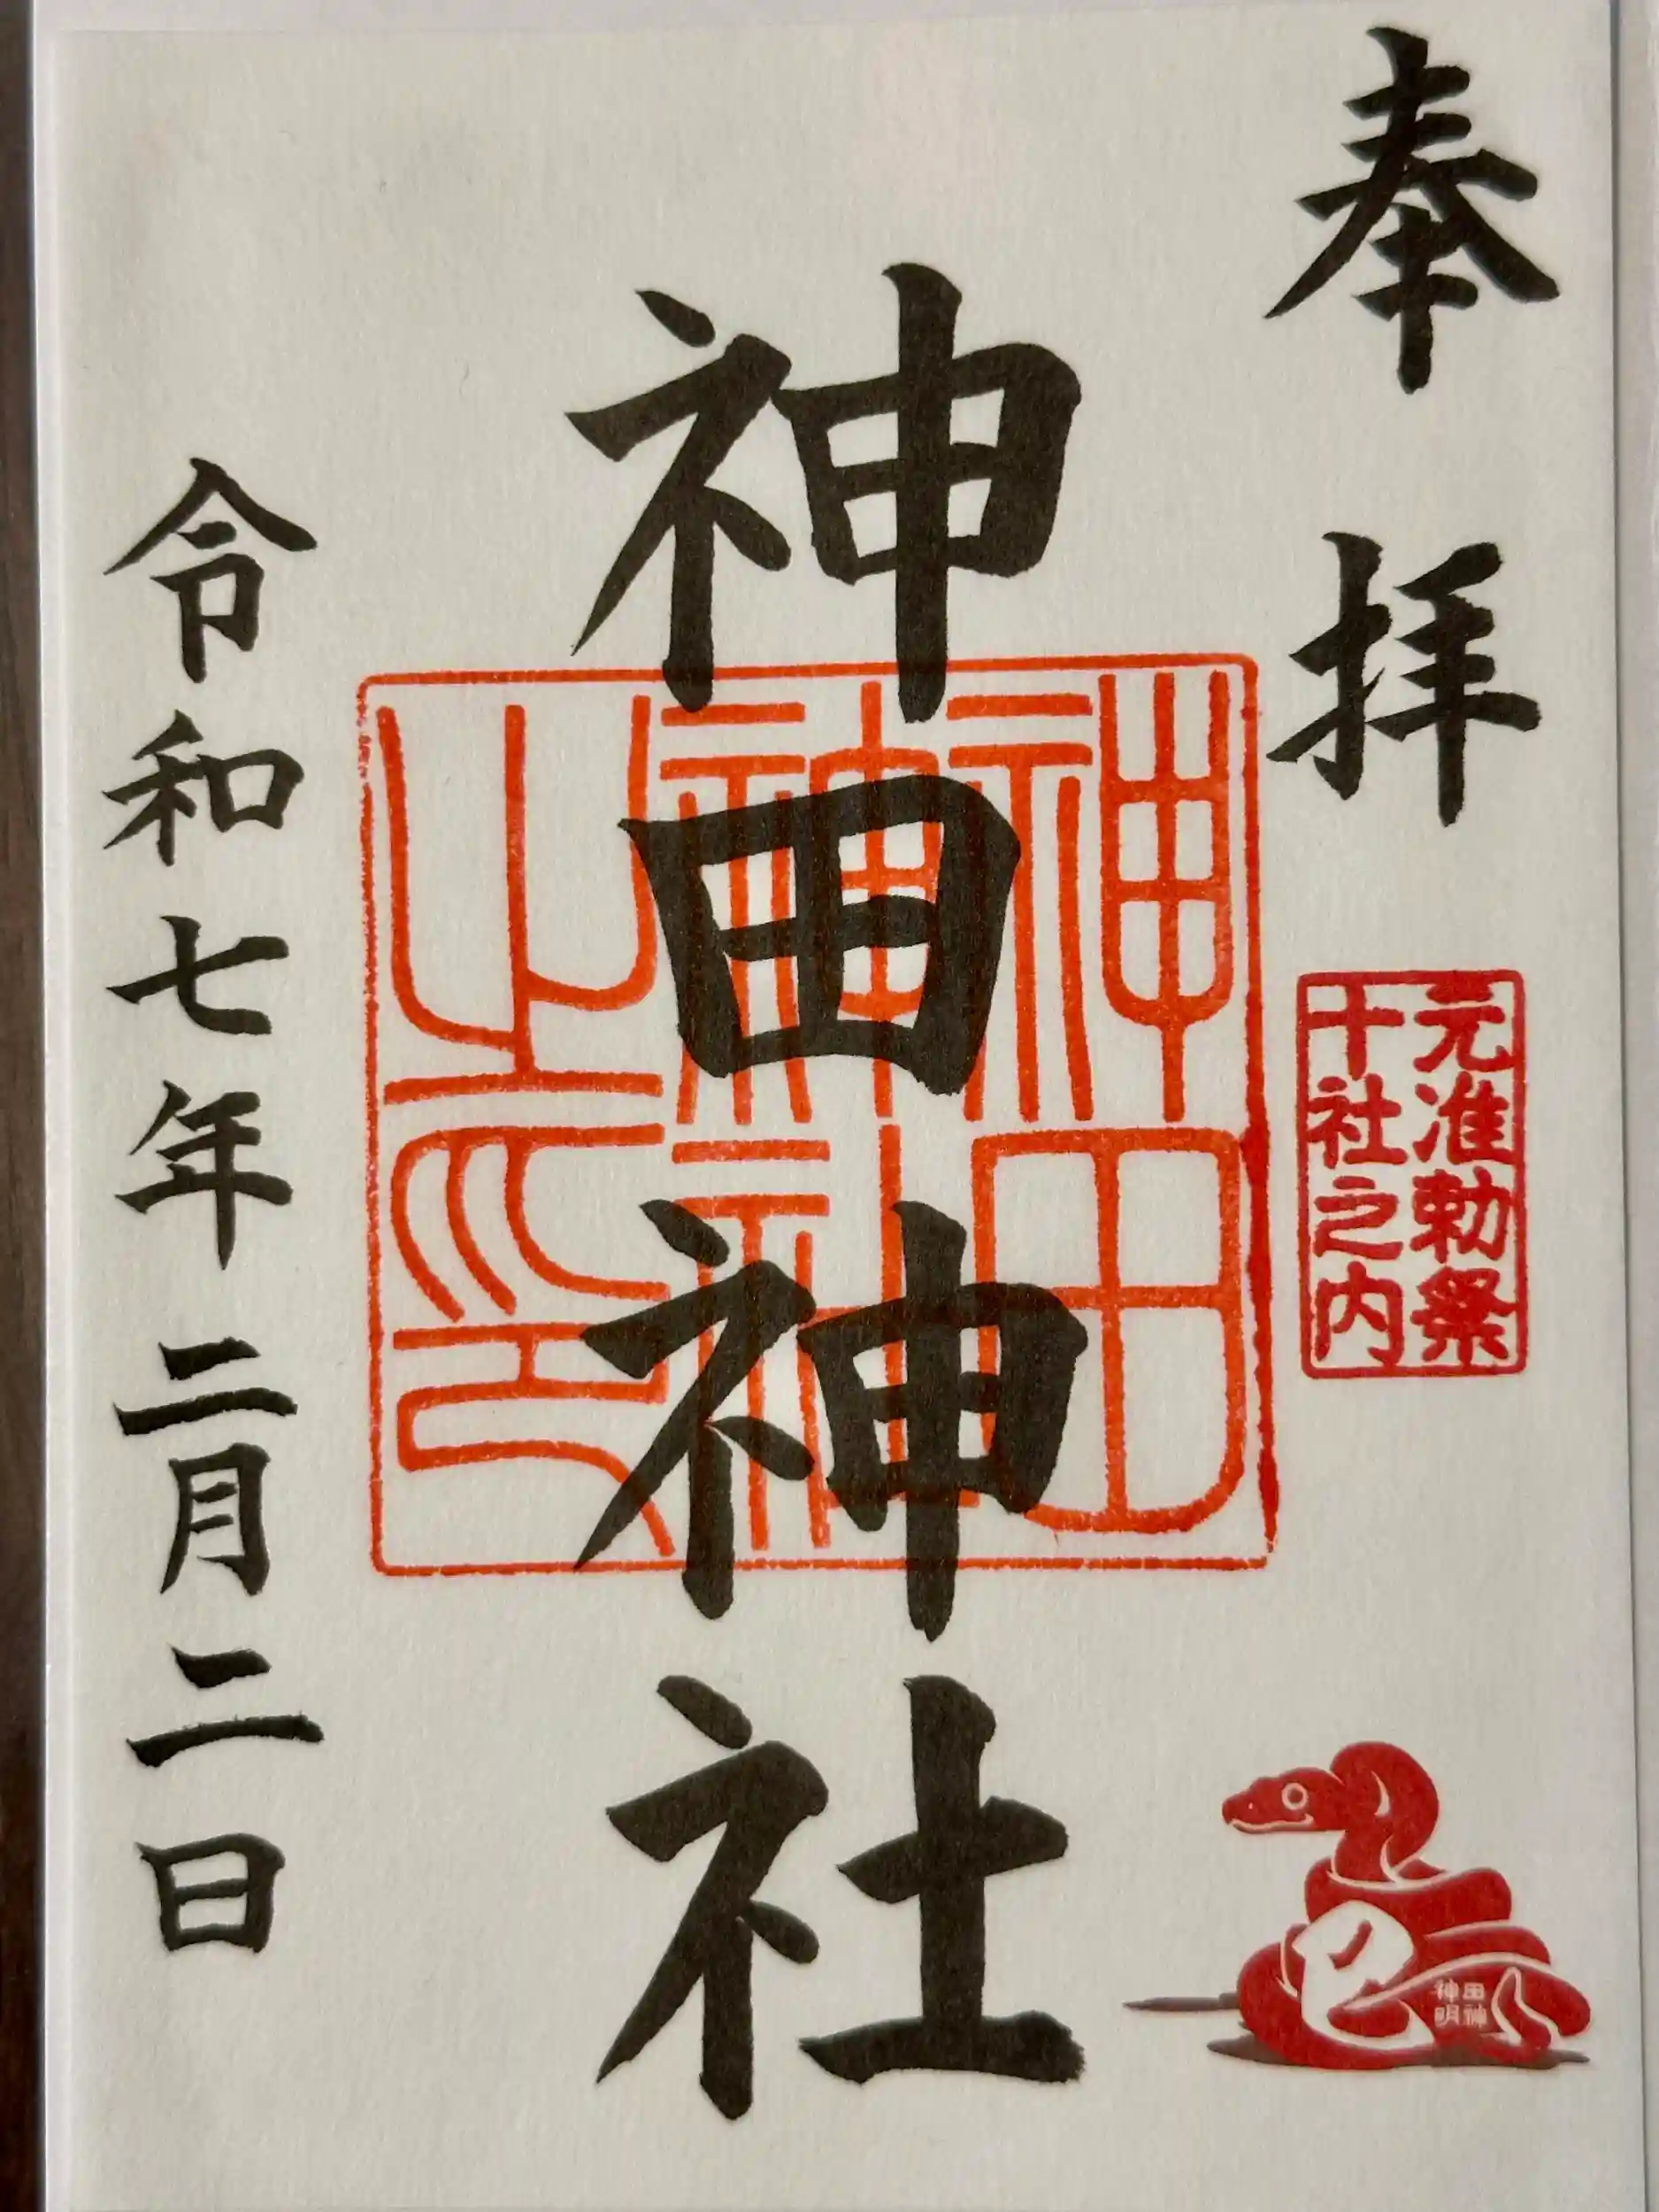 奉拝
元准勅祭
十社之内
神田神社
神田
神社
之印
令和七年二月二日
巳
田神
神明